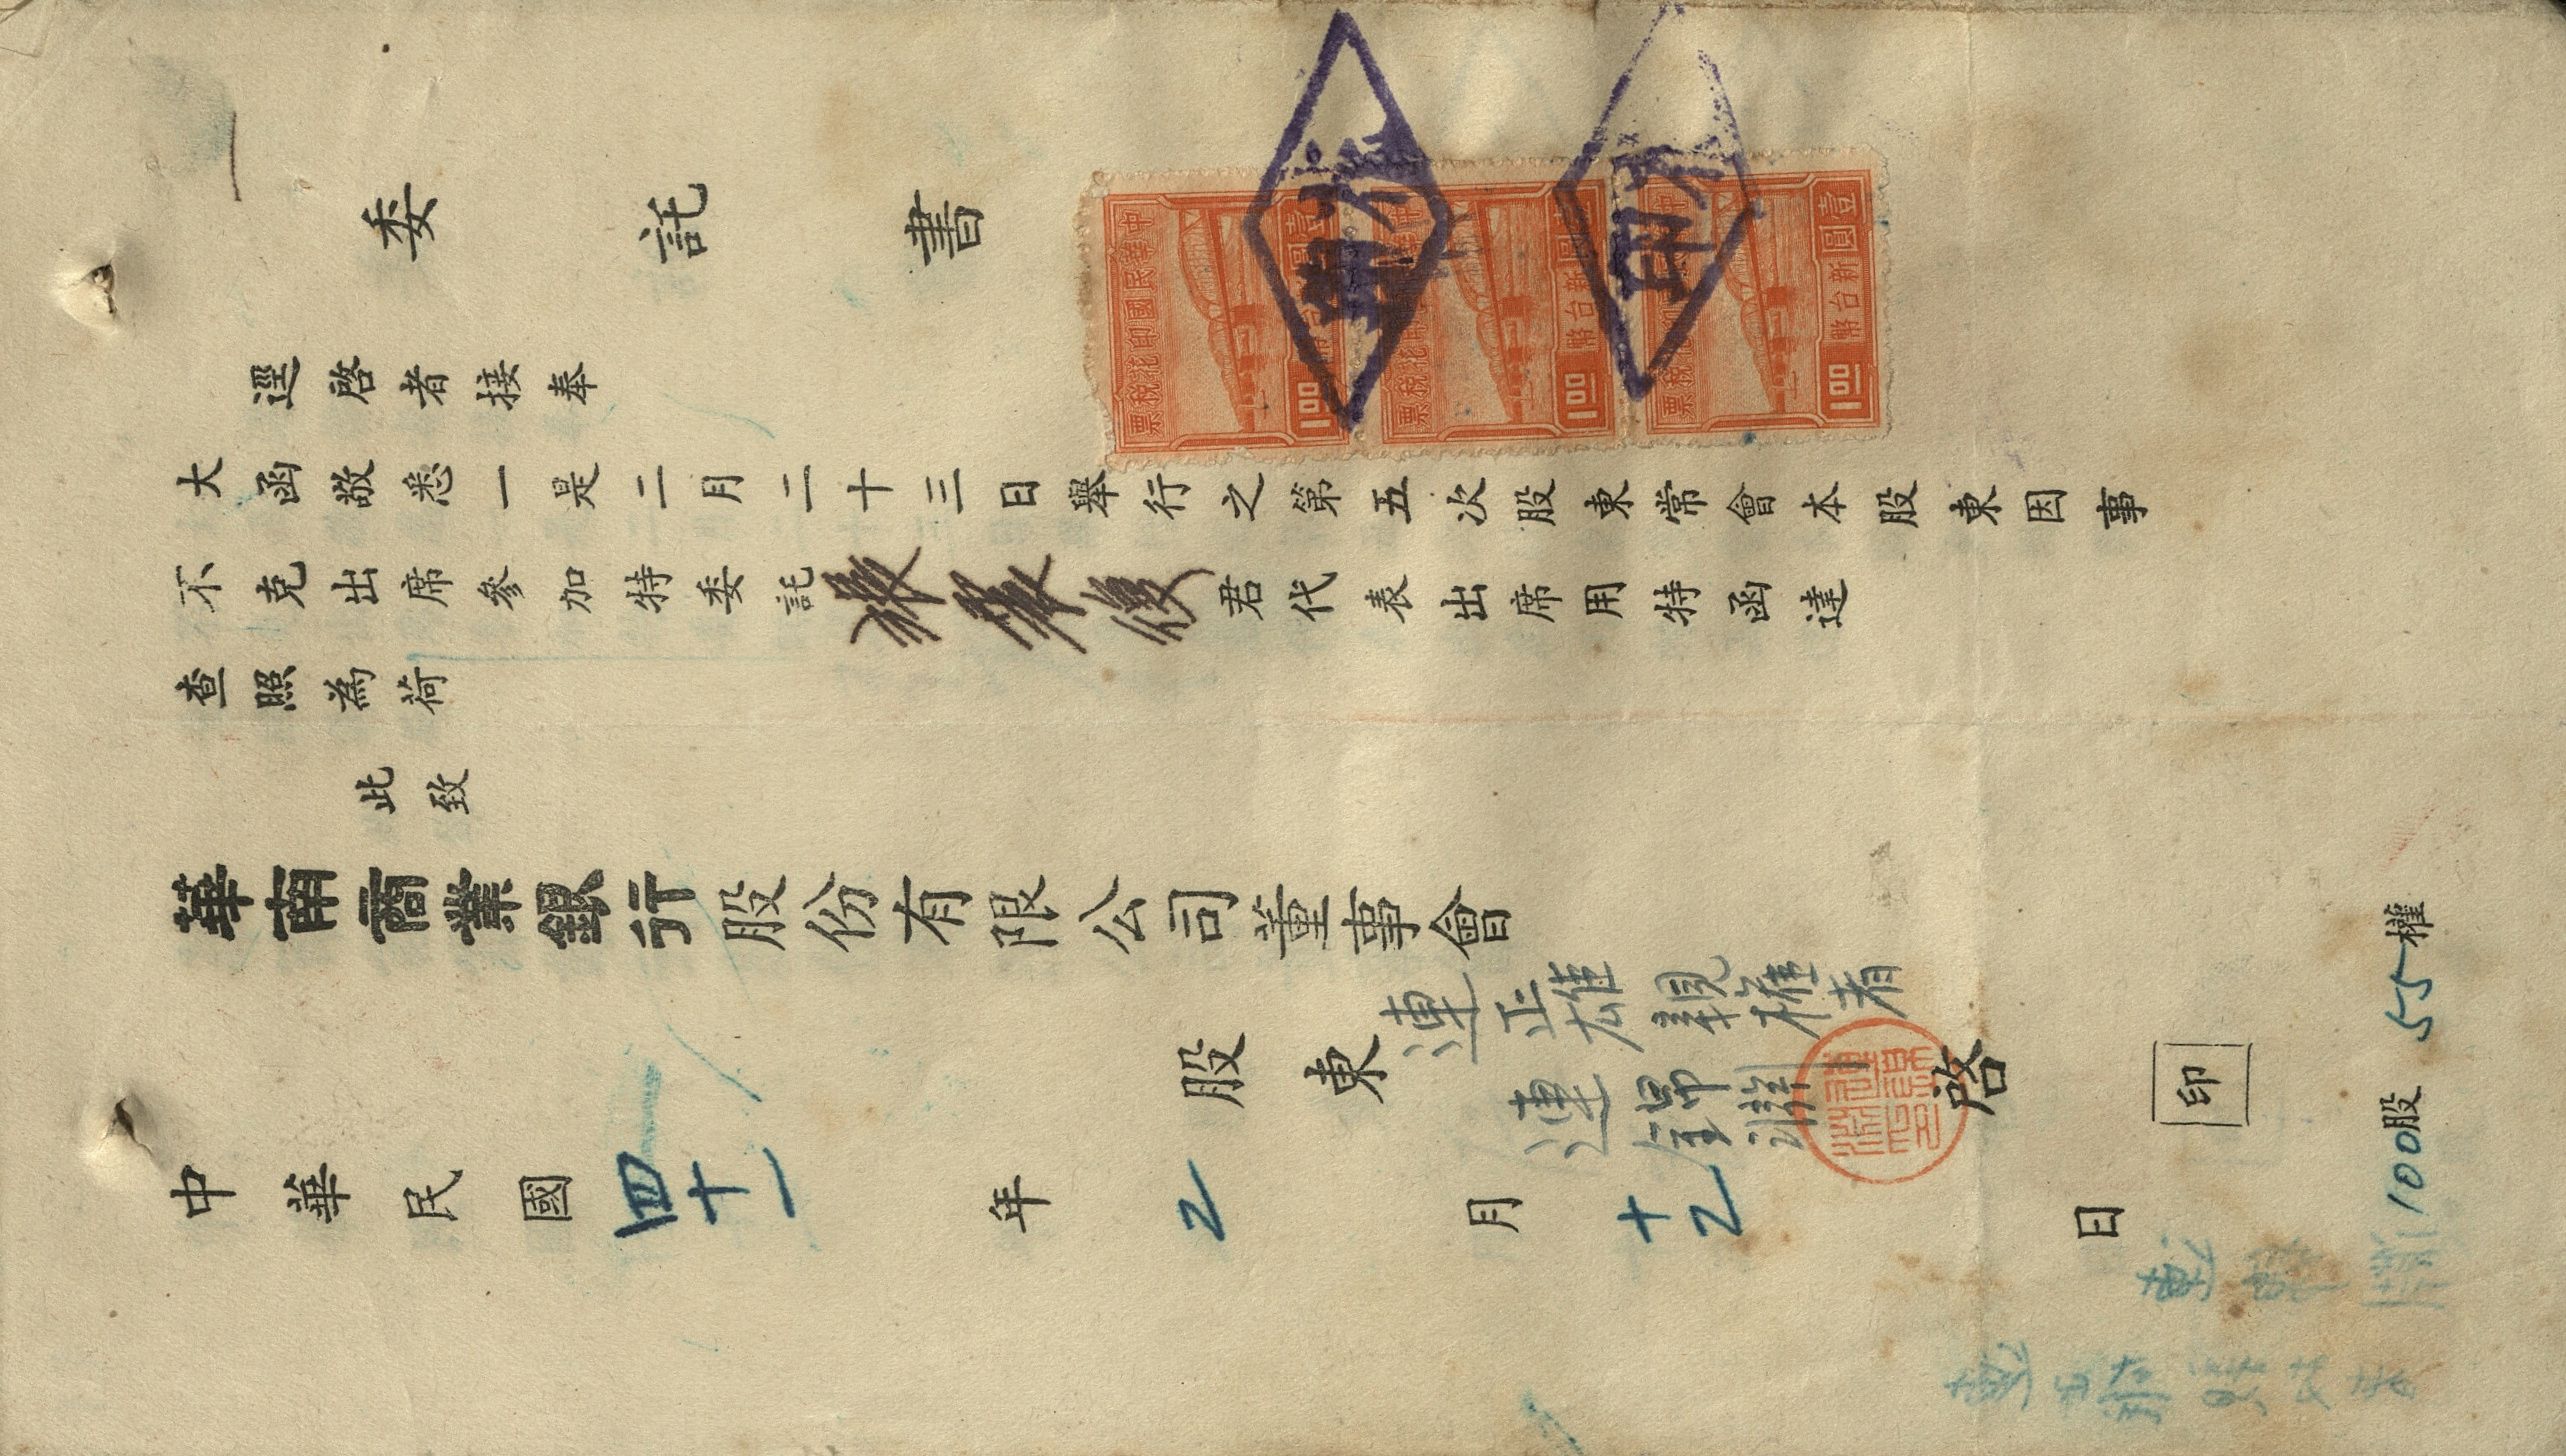 委託書
逕啓者接奉
大函敬悉一是二月二十三日舉行之第五次股東常會本股東因事
不克出席參加特委託
君代表出席用特函達
查照為荷
此致
華南商業銀行股份有限公司董事會
股東連正雄親權者
連錦 啓
印
中華民國四十一年2月十2日
100股 55權
中華民國印花稅票
壹圓新台幣
1.00
1.00
中華民國印花稅票
壹圓新台幣
1.00